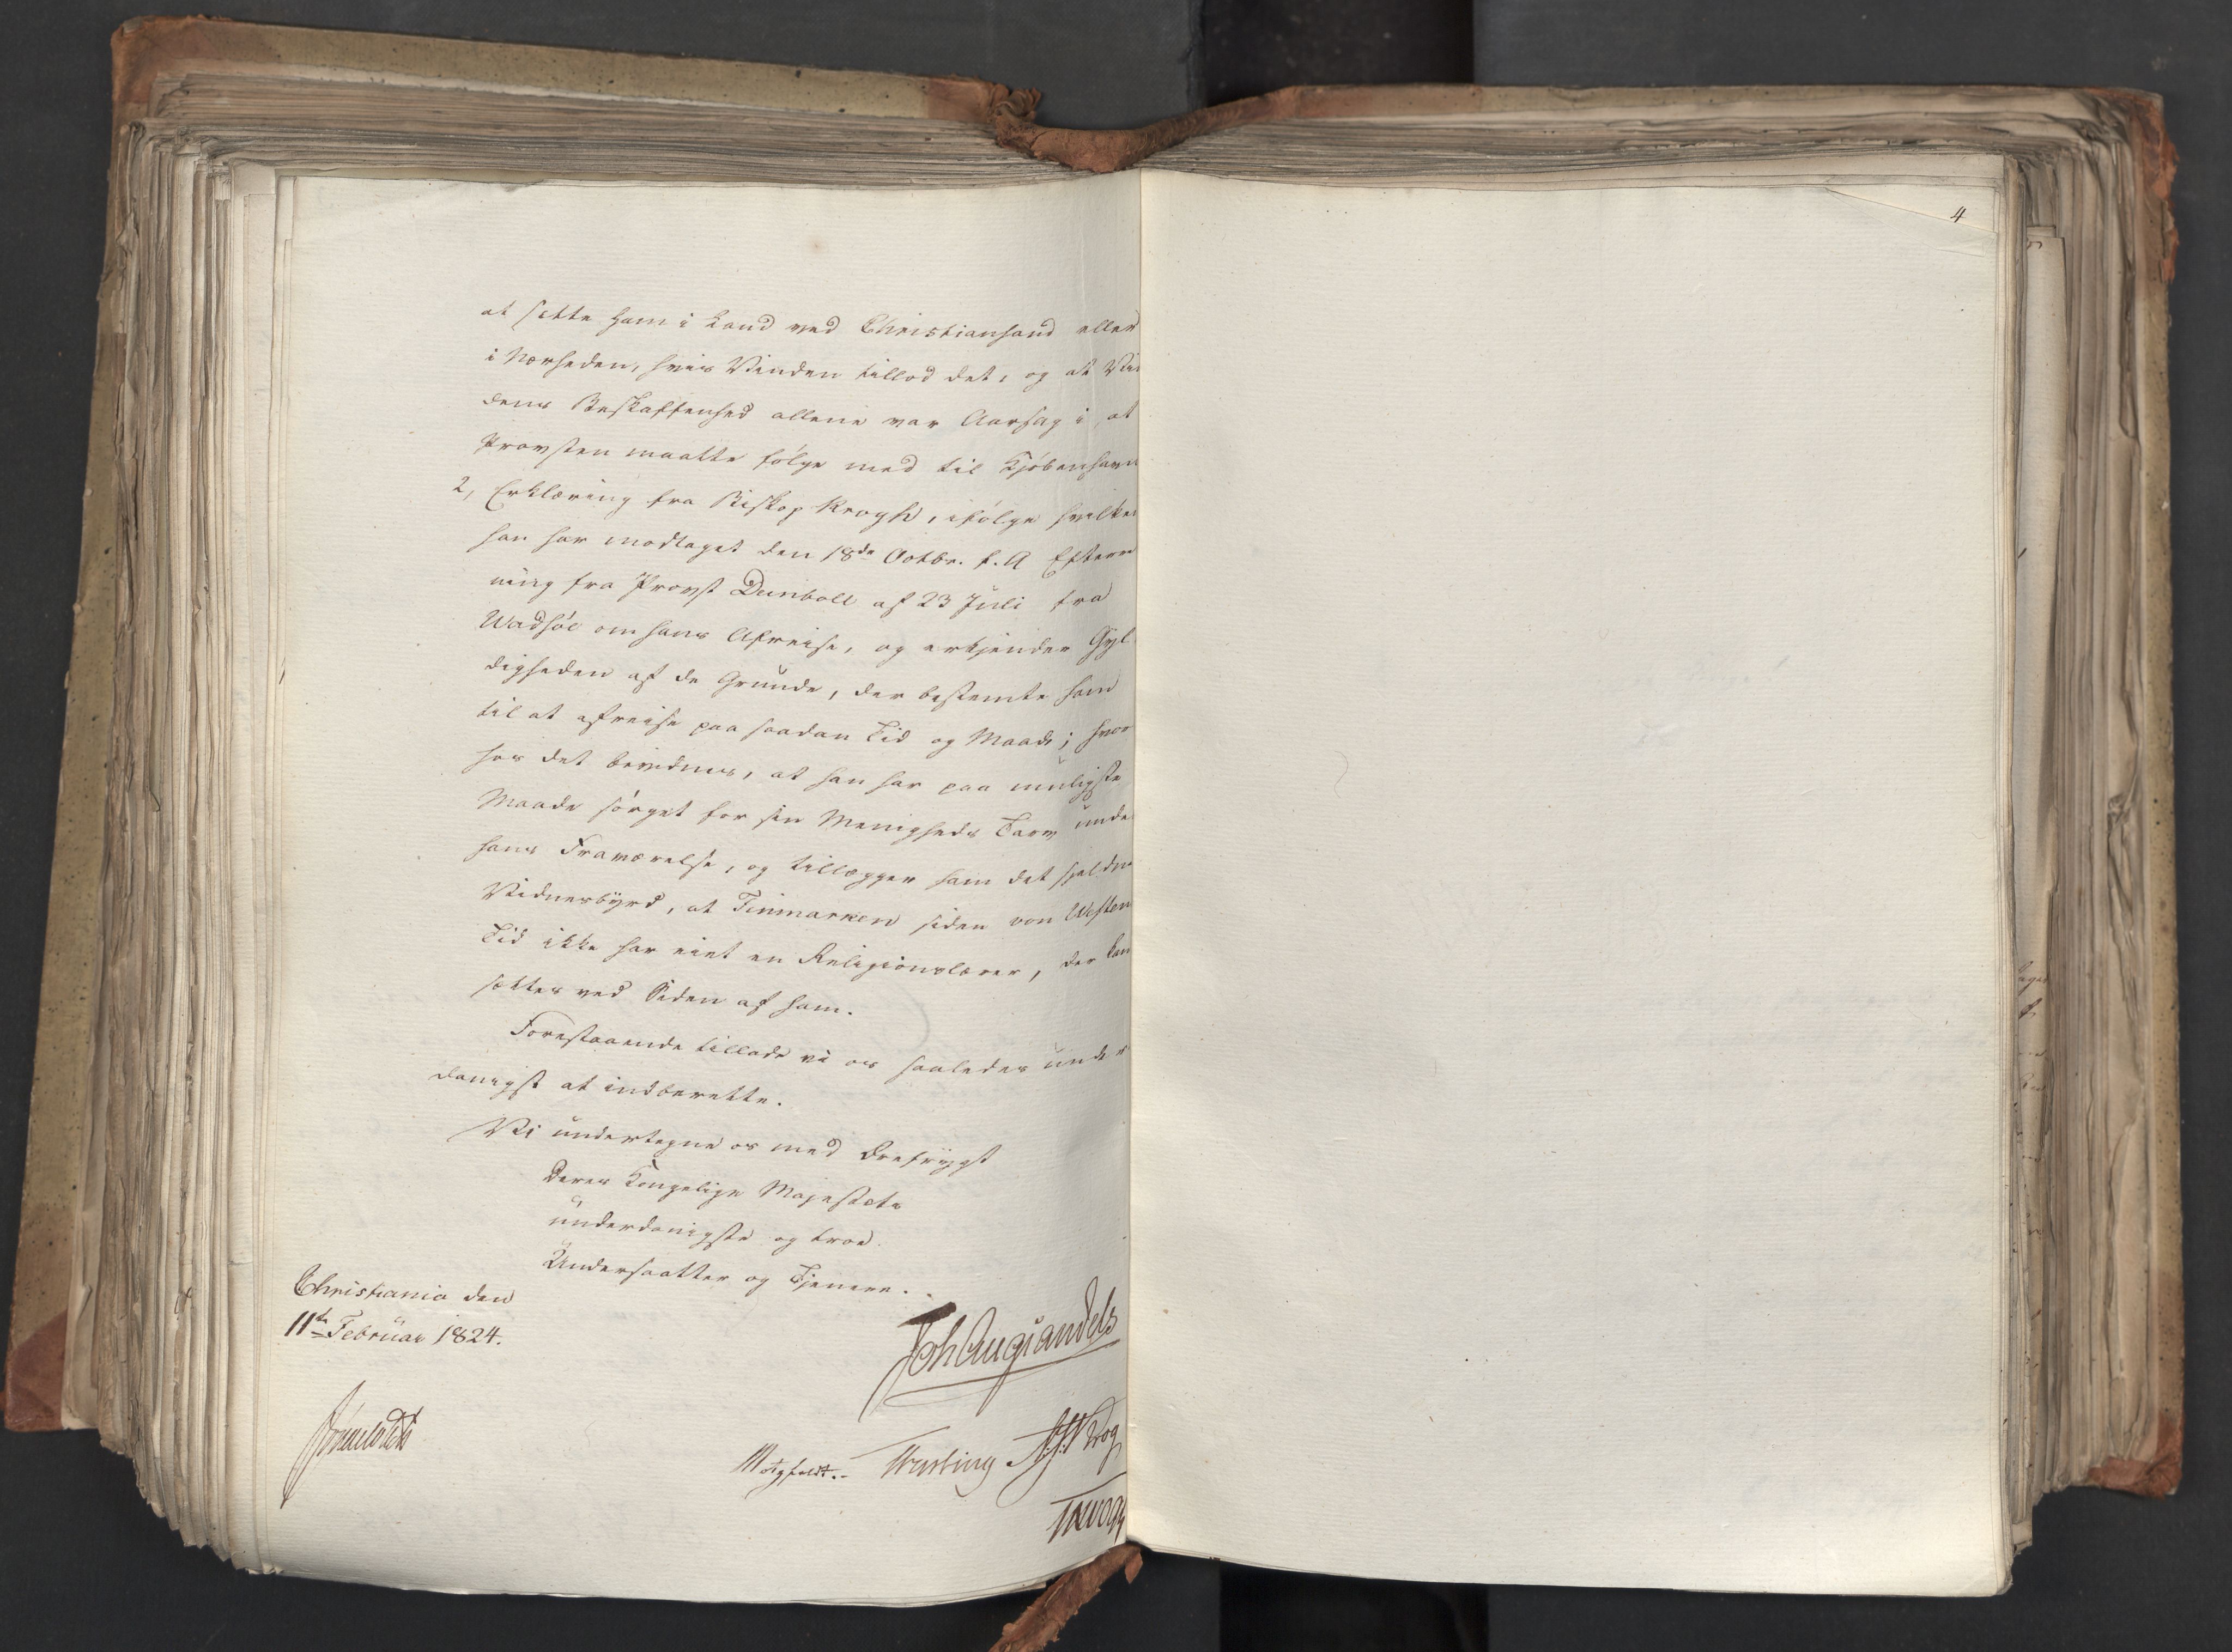 at sætte ham i Land ved Christiansand eller
i Nærheden, hvis Vinden tillod det, og at Vin
dens Beskaffenhed allene var Aarsag i at
Provsten maatte følge med til Kjöbenhavn
2, Erklæring fra Biskop Krogh, ifölge hvilken
han har modtaget den 18de Octbr. f. A Efterre
ning fra Provst Deinboll af 23 Juli fra
Wadsöe om hans Afreise, og erkjender Gyl
digheden af de Grunde, der bestemte ham
til at afreise paa saadan Tid og Maade; hvor
hos det bevidnes, at han har paa muligste
Maade sörget for sin Menigheds Tarv unde
hans Fraværelse, og tillægger ham det sjeldne
Vidnesbyrd, at Finmarken siden von Westen
Tid ikke har eiet en Religionslærer, der kan
sættes ved Siden af ham.
Forestaaende tillade vi os saaledes under
danigst at indberette.
Vi undertegne os med Ærefrygt
Deres Kongelige Majestæts
underdanigste og troe
Undersaatter og Tjenere.
Christiania den
11te Februar 1824.
Joh Aug Sandels
Motzfeldt.
Krog